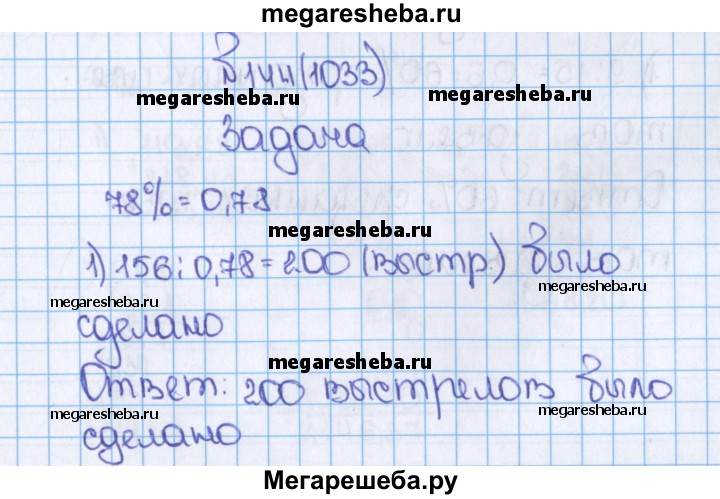 megaresheba.ru
№144(1033)
megaresheba.ru megaresheba.ru
Задача
78% = 0,78
megaresheba.ru
1) 156 : 0,78 = 200 (выстр.) было
megaresheba.ru megaresheba.ru
сделано
megaresheba.ru
Ответ: 200 выстрелов было
megaresheba.ru megaresheba.ru
сделано
Мегарешеба.ру